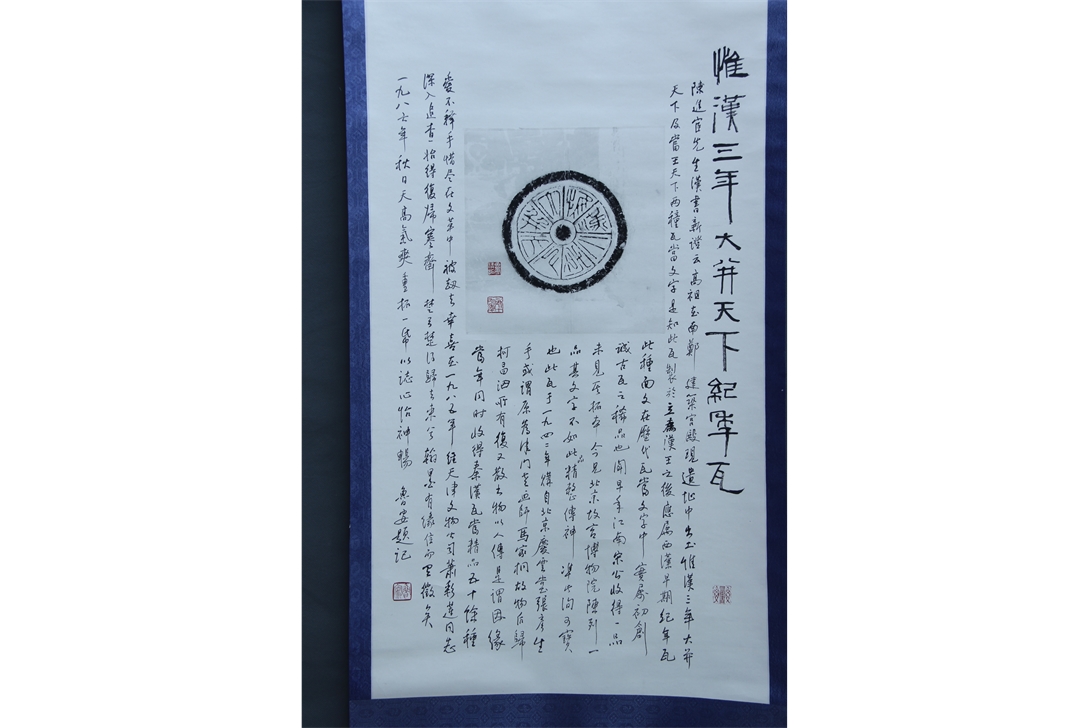 惟漢三年大并天下紀年瓦
陳進宦先生漢書新證云高祖在南鄭建築宮殿現遺址中出土惟漢三年大并
天下及當王天下兩種瓦當文字是知此瓦製於立為漢王之後應屬西漢早期紀年瓦
此種面文在歷代瓦當文字中實屬初創
誠古瓦之稀品也聞早年江南宗公收得一品
未見其拓本今見北京故宮博物院陳列一
品其文字不如此品精整傳神準此洵可寶
也此瓦于一九四二年得自北京慶雲堂張彥生
手或謂原為津門老畫師馬家桐故物后歸
柯昌泗所有復又散出物以人傳是謂因緣
當年同時收得秦漢瓦當精品五十餘種
愛不釋手惜尽在文革中被劫去幸喜在一九八五年經天津文物公司蕭彩蓮同志
深入追查始得復歸寒齋楚弓楚得歸去來兮翰墨有緣信而有徵矣
一九八七年秋日天高氣爽重拓一帋以誌心怡神暢
魯安題記